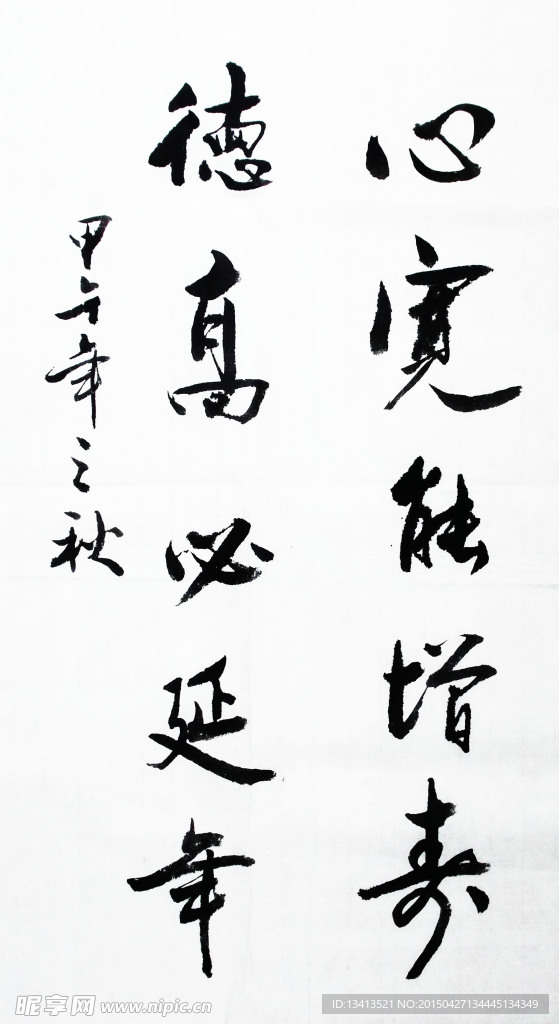 心宽能增寿
德高必延年
甲午年之秋
昵享网 www.nipic.cn
ID:13413521 NO:20150427134445134349